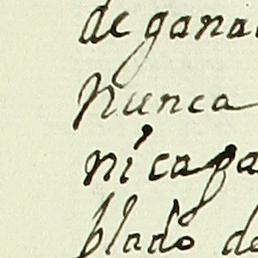 de gana
nunca
ni capa
blado de